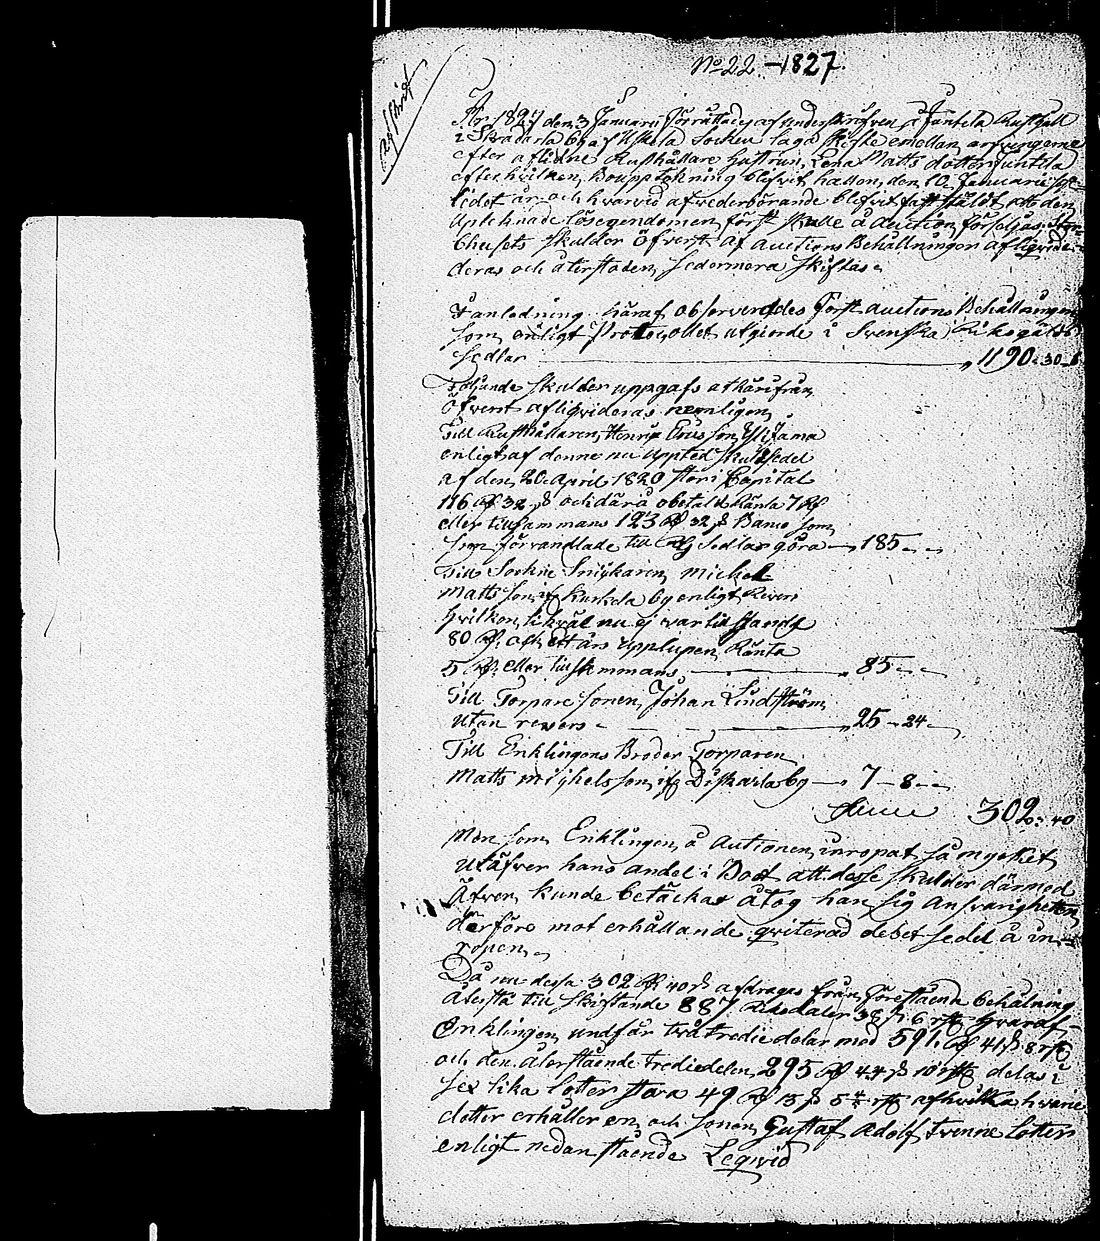 No 22. -1827.
Afskrift
År 1827 den 3 Januarii förrättades af underskrifven, å Juntila Rusthåll
i Skadarla by af Uskela Socken laga skifte emellan arvingarne
efter aflidne Rusthållare hustrun, Lena Matts dotter Juntila
efter hvilken, Bouppteckning blifvit hållen, den 10 Januarii
ledet år, och hvarvid af vederbörande blifvit fastställt att den
upteknade lösegendomen, först skulle å auction försäljas,
bhusets skulder öfverst af auctions Behållningen afliqvide-
deras och återstoden, sedermera skiftas.
I anledning häraf observerades Först auctions Behållningen
som enligt Protocollet utgiorde i Svenska Riksgälds
Sedlar 1190: 30. 6
Följande skulder uppgafs at härifrån
öfverst afliqvideras nemligen,
Till Rusthållaren, Henrix
enligt af denne nu uppted skuldsedel
af den, 20 April 1820 stor i Capital
116 Rd 32 s och därå obetald Ränta 7 Rd
eller tillsammans 123 Rd 32 s Banco som
som förvandlade till Rg Sedlar göra 185
Till Sockne Snickaren, Michel
Mattsson, ifr Kurkela by enligt Revers
hvilken, likväl nu ej var tillstands
80 Rd. och ett års upplupen, Ränta
5 Rd. eller tillsammans 85
Till Torpare sonen, Johan Lindström,
utan revers 25 - 24
Till Enklingens Broder Torparen,
Matts Michelsson, ifr Diskarla by 7 - 8
Summa 302: 40
Men som Enklingen, å Auctionen, inropat så mycket,
utöfver hans andel i Boet att desse skulder därmed
äfven, kunde betäckas åtog han sig ansvarigheten,
därföre mot erhållande qviterad debet sedel å in-
ropen.
Då nu dessa 302 Rd 40 s afdrages från, föreståend behålning
återstå till skiftande 887 Riksdaler 38 s 6 rst hvaraf
Enklingen, undfår två tredie delar med 591 Rd 41 s 8 rst
och den återstående trediedelen, 295 Rd 44 s 10 rst delas i
sex lika lotter stora 49 Rd 15 s 5 rst af hvilka hvarie
dotter erhåller en, och sonen, Gustaf Adolf tvenne lotter
enligt nedanstående Leqvid